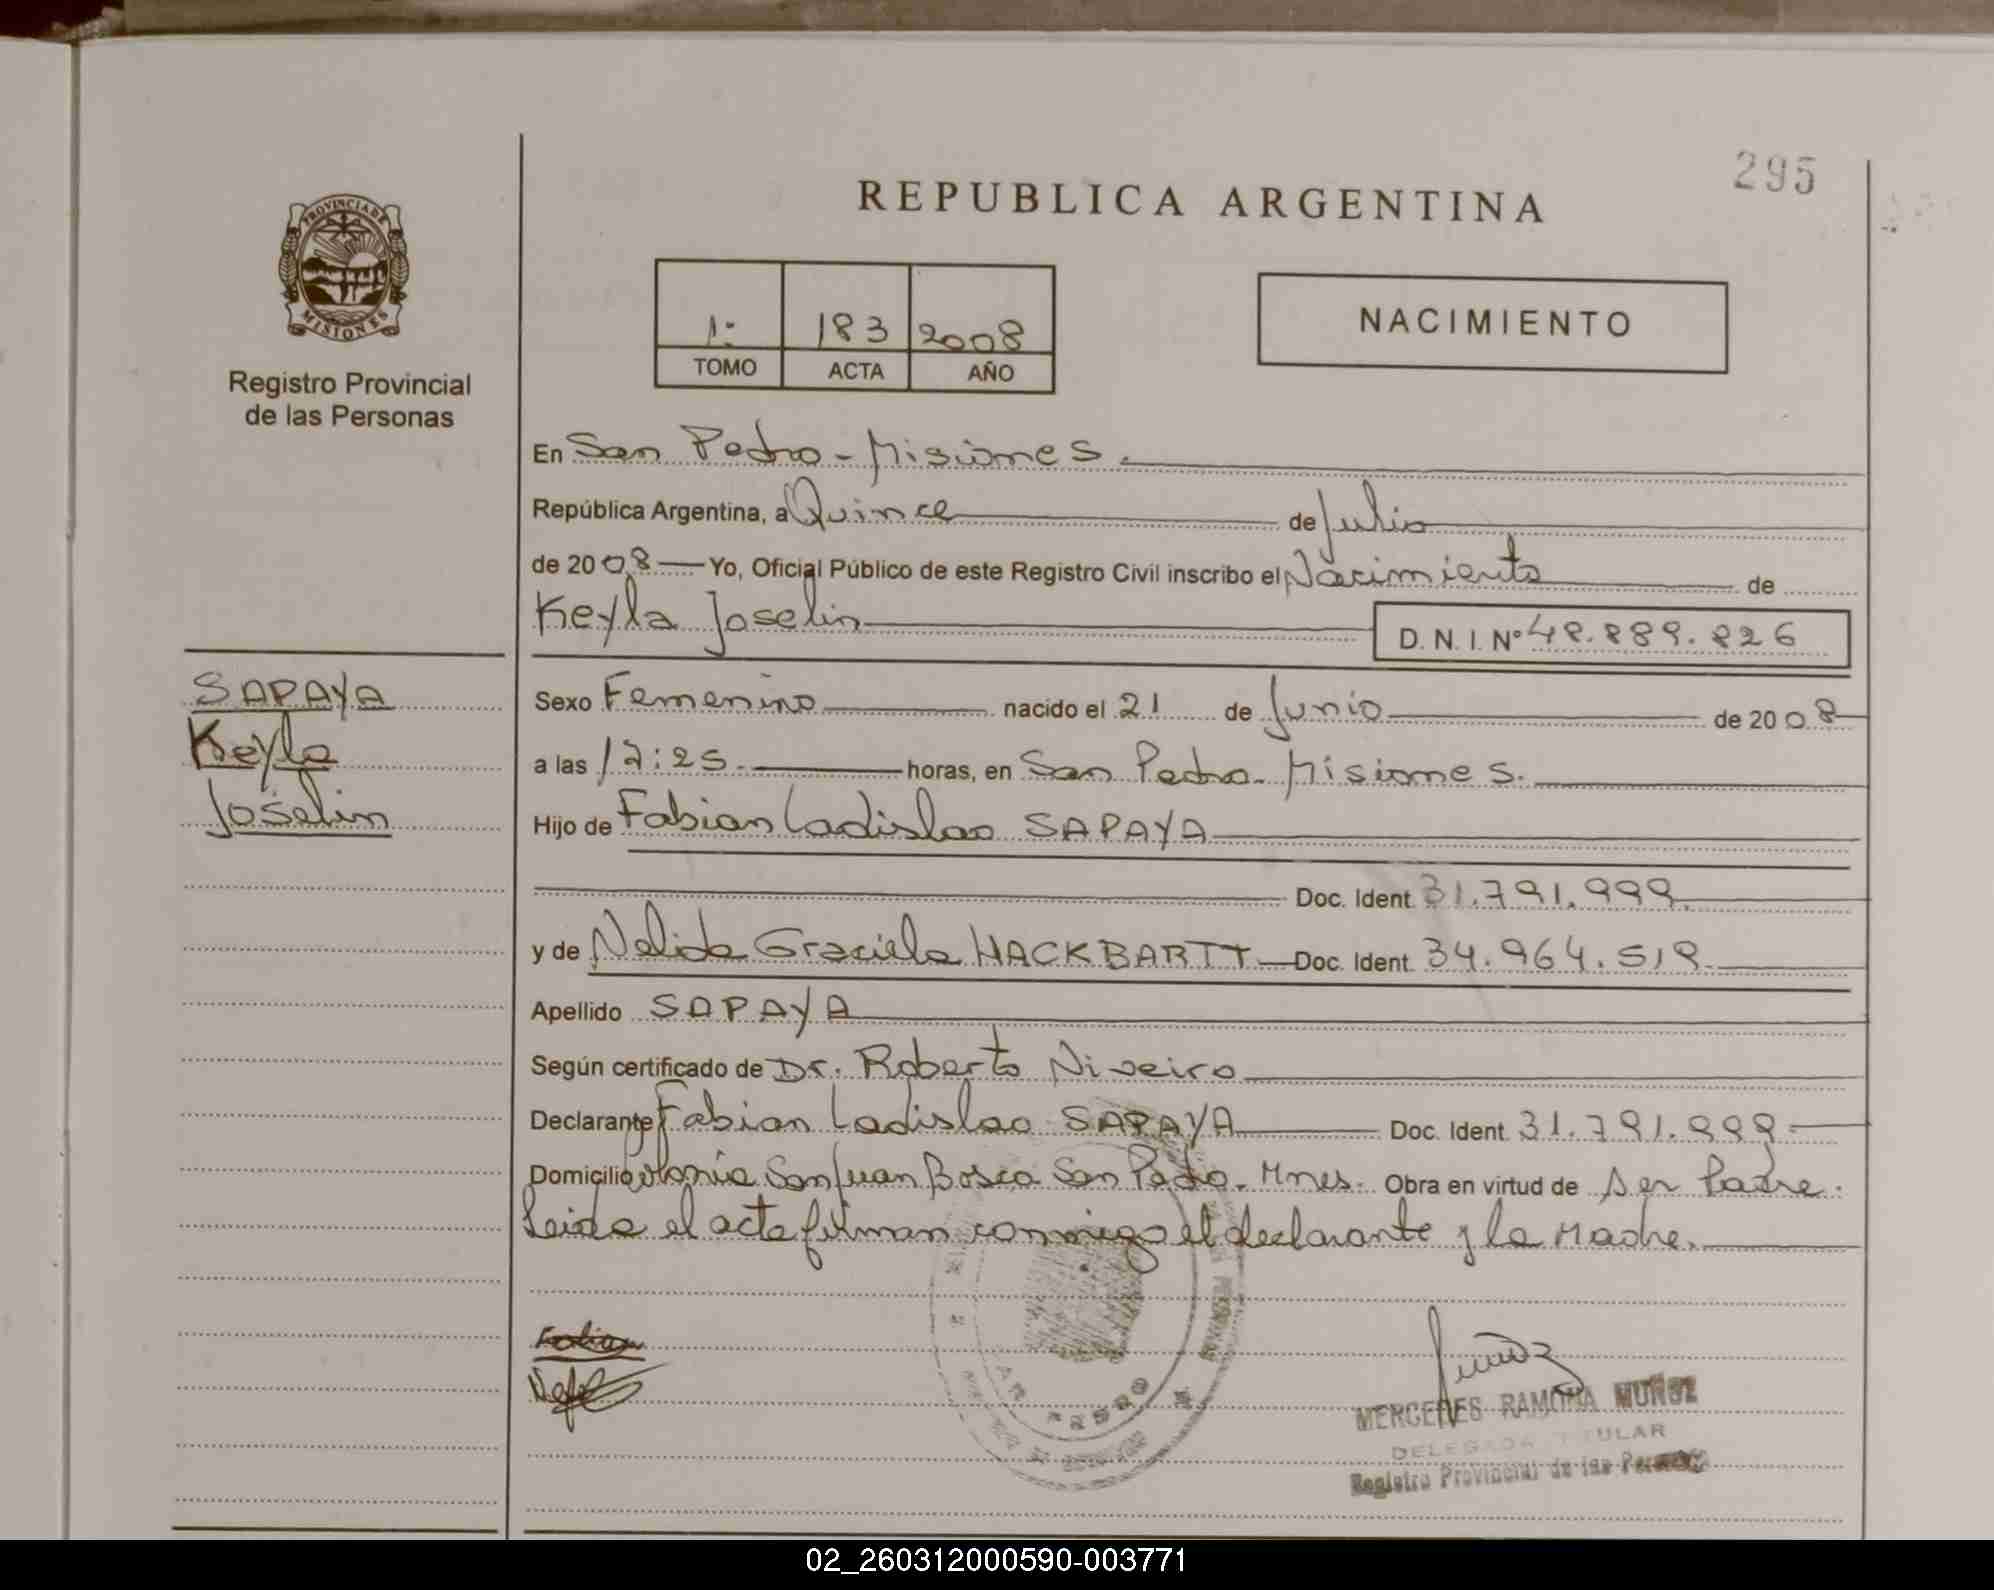 295
REPUBLICA ARGENTINA
PROVINCIA DE
MISIONES
Registro Provincial
de las Personas
1: 183 2008
TOMO ACTA AÑO
NACIMIENTO
En San Pedro - Misiones.
República Argentina, a Quince de Julio
de 2008 Yo, Oficial Público de este Registro Civil inscribo el Nacimiento de
Keyla Joselin D. N. I. Nº 48.889.826
SAPAYA
Keyla
Joselin
Sexo Femenino nacido el 21 de Junio de 2008
a las 12:25 horas, en San Pedro - Misiones.
Hijo de Fabian Ladislao SAPAYA
Doc. Ident. 31.791.999.
y de Nelida Graciela HACKBARTT Doc. Ident. 34.964.518.
Apellido SAPAYA
Según certificado de Dr. Roberto Niveiro
Declarante Fabian Ladislao SAPAYA Doc. Ident. 31.791.999
Domicilio Colonia San Juan Bosco San Pedro - Mnes. Obra en virtud de Ser Padre.
Leida el acta firman conmigo el declarante y la Madre.
Fabian
MERCEDES RAMONA MUÑOZ
DELEGADA TITULAR
Registro Provincial de las Personas
02_260312000590-003771